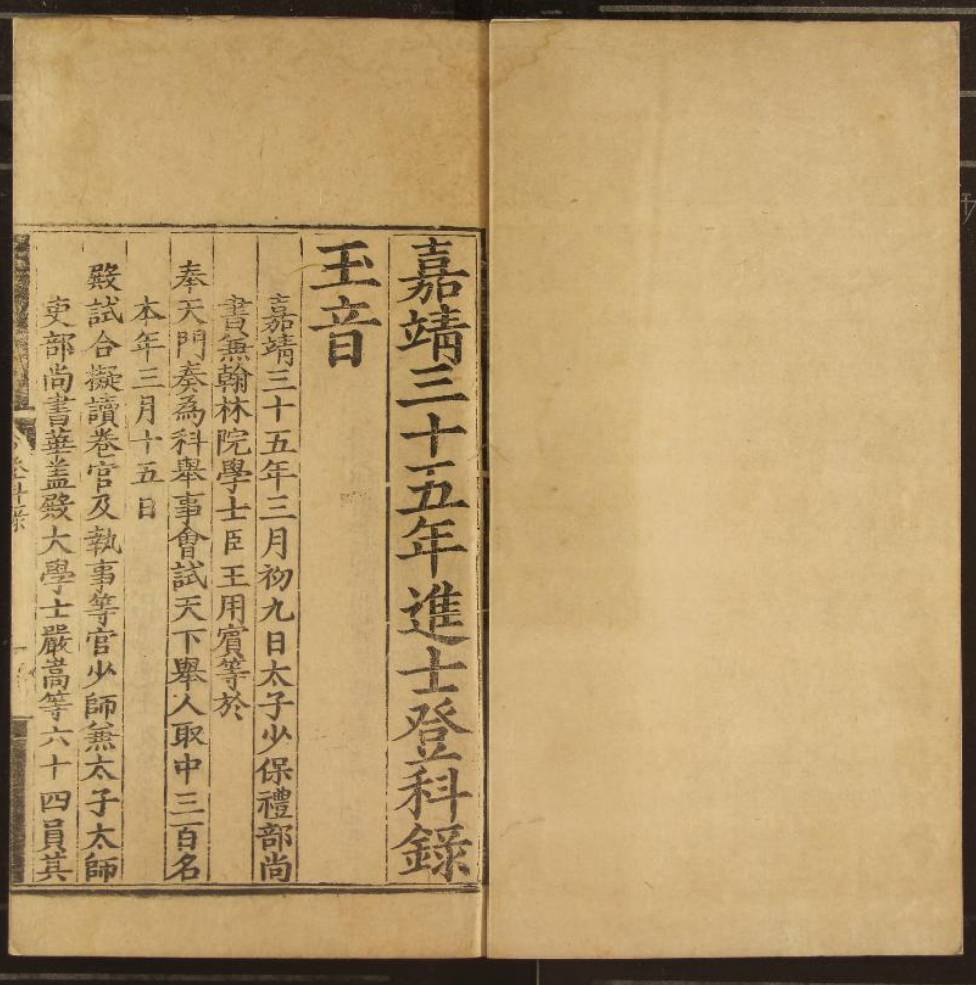 嘉靖三十五年進士登科錄
玉音
嘉靖三十五年三月初九日太子少保禮部尚
書兼翰林院學士臣王用賓等於
奉天門奏為科舉事會試天下舉人取中三百名
本年三月十五日
殿試合擬讀卷官及執事等官少師兼太子太師
吏部尚書華蓋殿大學士嚴嵩等六十四員其